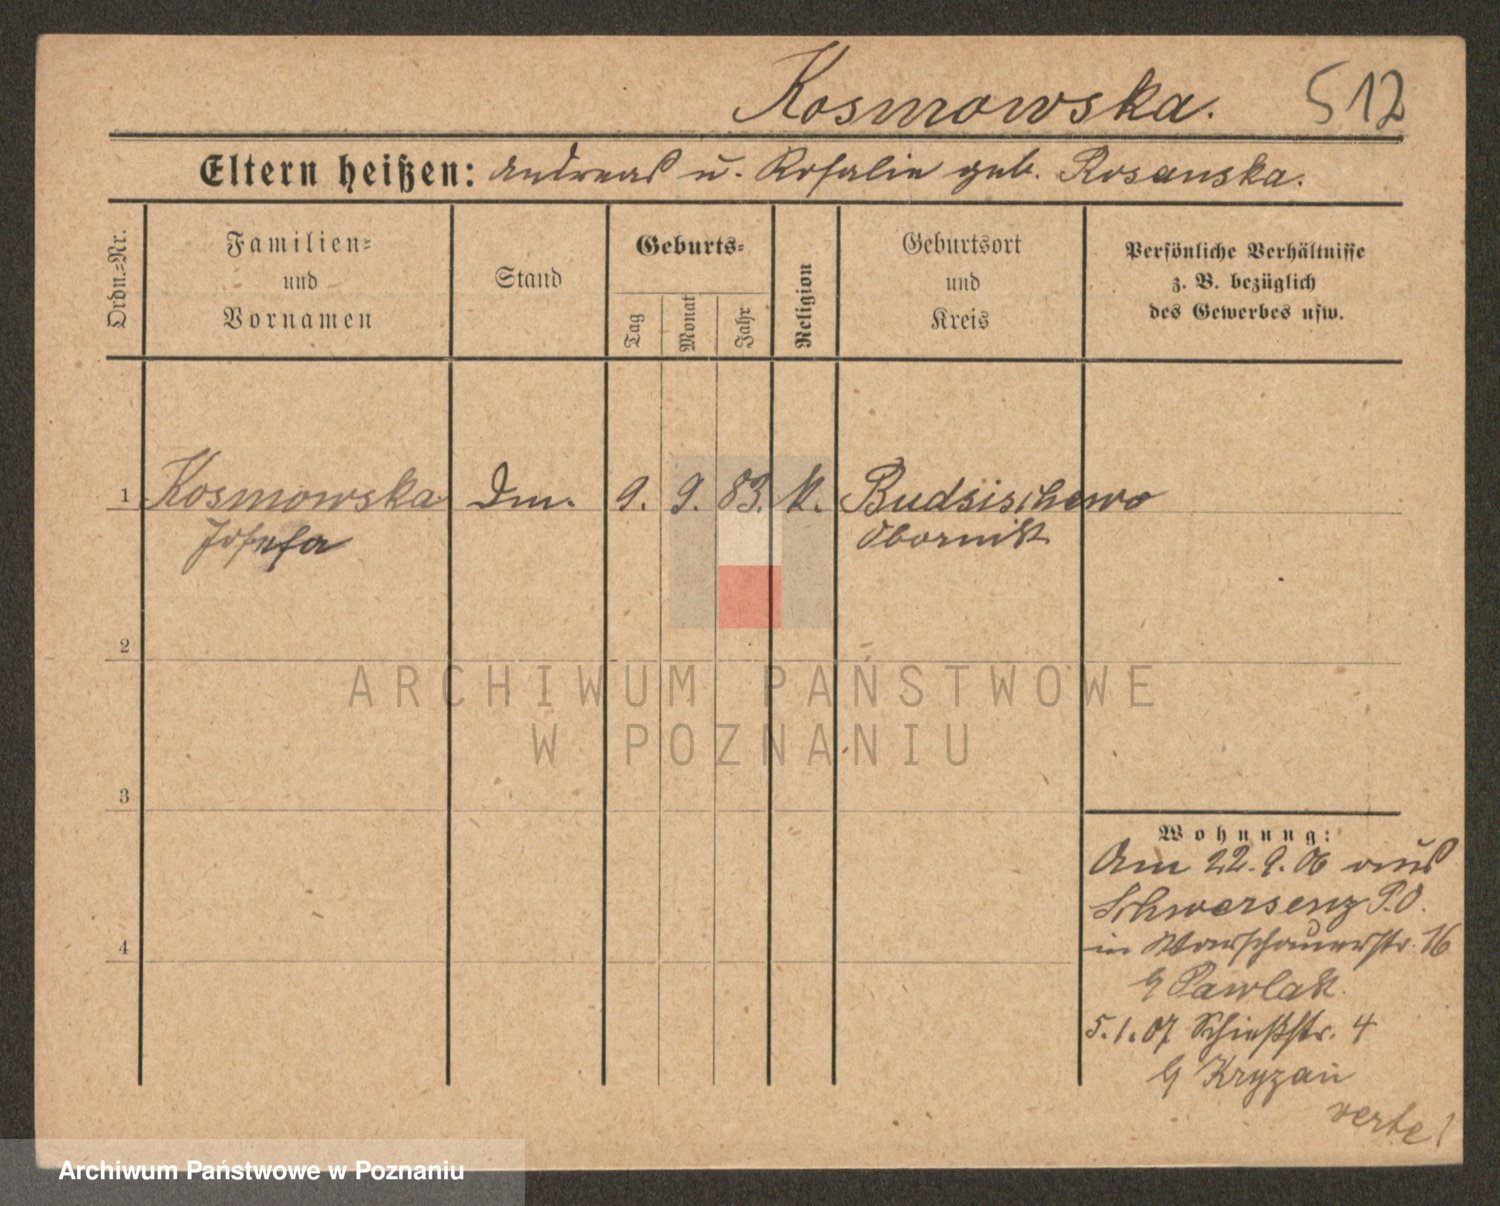 Kosmowska. 512
Eltern heißen: Andreas u. Rosalie geb. Rosanska.
Ordn.=Nr.
Familien=
und
Vornamen
Stand
Geburts=
Tag
Monat
Jahr
Religion
Geburtsort
und
Kreis
Persönliche Verhältnisse
z. B. bezüglich
des Gewerbes usw.
1 Kosmowska 9. 9. 83. k. Budsischewo
Josefa Obornik
2
3
4
Wohnung:
Am 22.9.06 aus
Schwersenz P.O.
in Warschauerstr. 16
b Pawlak.
5.1.07 Schießstr. 4
b Kryzan
verte!
ARCHIWUM PAŃSTWOWE
W POZNANIU
Archiwum Państwowe w Poznaniu